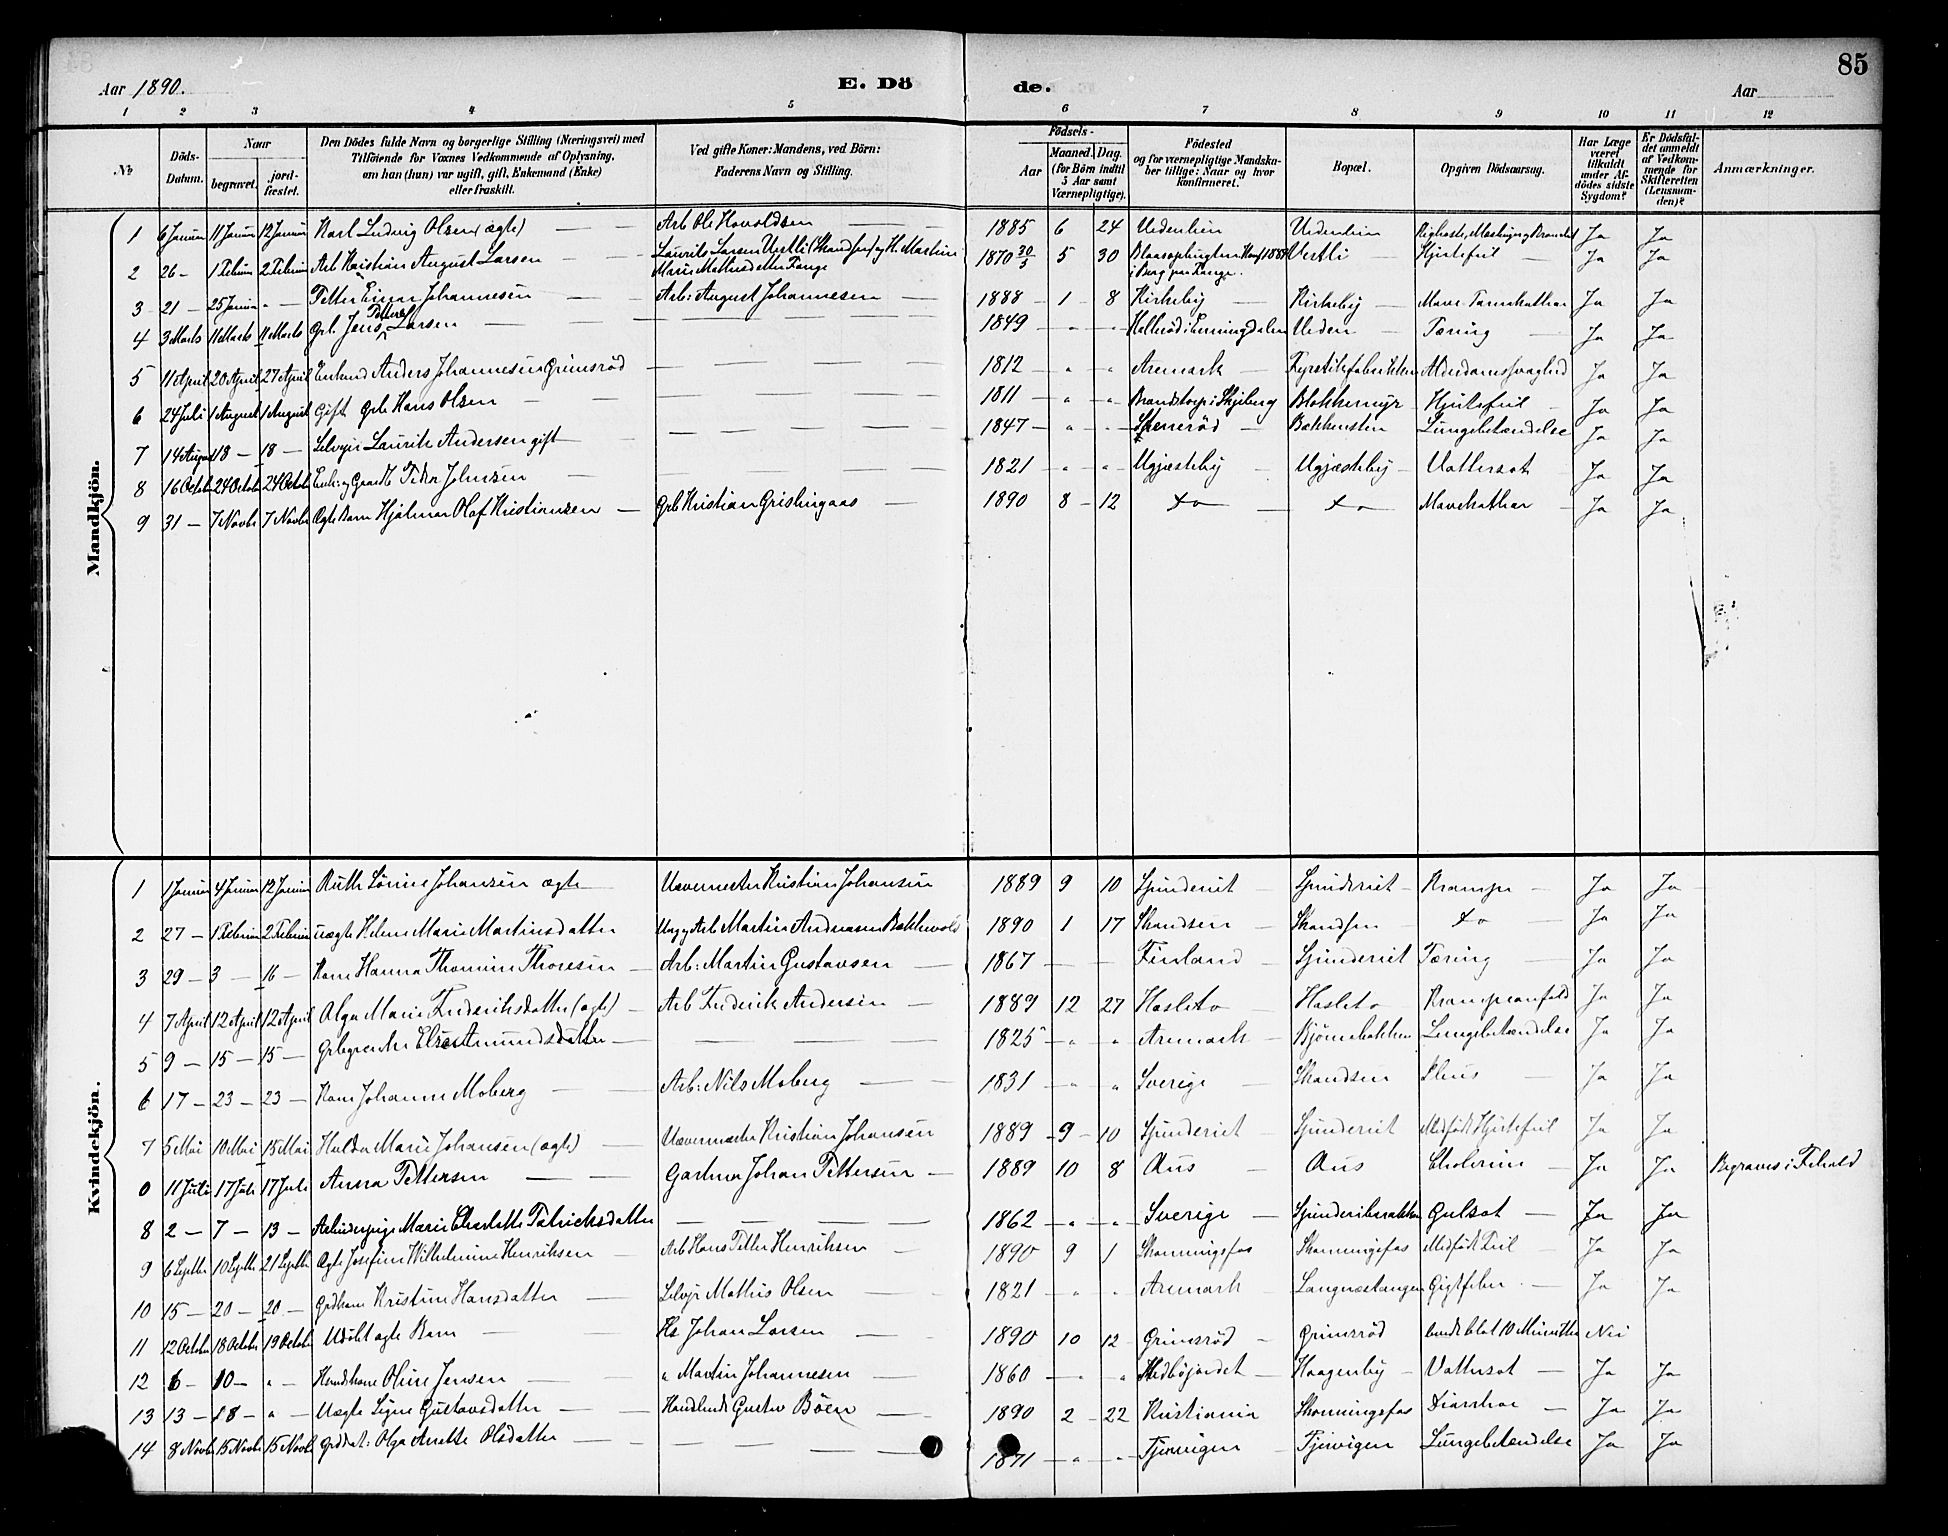 85
Aar 1890.
E. Dö
de.
Aar
1 2 3 4 5 6 7 8 9 10 11 12
№
Döds-Datum.
Naar
begravet.
jord-fæstet.
Den Dödes fulde Navn og borgerlige Stilling (Næringsvei) med
Tilföiende for Voxnes Vedkommende af Oplysning,
om han (hun) var ugift, gift, Enkemand (Enke)
eller fraskilt.
Ved gifte Koner: Mandens, ved Börn:
Faderens Navn og Stilling.
Födsels-
Aar
Maaned. Dag.
(for Börn indtil
5 Aar samt
Værnepligtige).
Födested
og for værnepligtige Mandska-
ber tillige: Naar og hvor
konfirmeret.
Bopæl.
Opgiven Dödsaarsag.
Har Læge
været
tilkaldt
under Af-
dödes sidste
Sygdom?
Er Dödsfal-
det anmeldt
af Vedkom-
mende for
Skifteretten
(Lensman-
den)?
Anmærkninger.
Mandkjön.
1 6 Januar 11 Januar 12 Januar Karl Ludvig Olsen (ægte) Arb Ole Havoldsen 1885 6 24 Vedenlien Vedenlien Ja Ja
2 26 - 1 Februar 2 Februar Arb Kristian August Larsen 1870 30/5 5 30 Vestli Hjertefeil Ja Ja
3 21 - 25 Januar " - Petter Einar Johannesen Arb: August Johannesen 1888 - 1 - 8 Kirkeby Kirkeby Mave-Tarmkathar Ja Ja
4 3 Marts 11 Marts 11 Marts Grb. Jens Petter Larsen 1849 - " - " Veden Tæring Ja Ja
5 11 April 20 April 27 April Enkemd Anders Johannesen Grimsröd 1812 - " " Aremark Fyrstikfabrikken Alderdomssvaghed Ja Ja
6 24 Juli 1 August 1 August Gift Grb Hans Olsen 1811 - " - " Brandstorp i Skjeberg Blokkemyr Hjertefeil Ja Ja
7 14 August 18 - 18 - Selvejr Laurits Andersen gift 1847 - " - Skeneröd Bakkensten Lungebetændelse Ja Ja
8 16 Octobr 24 Octobr 24 Octobr Petter Johnsen 1821 - " - " Ugjesteby Ugjesteby Vattersot Ja Ja
9 31 - 7 Novbr 7 Novbr Ægte Barn Hjalmar Olaf Kristiansen Grb Kristian Grislingaas 1890 8 - 12 Mavekathar Ja Ja
Kvindekjön.
1 1 Januar 4 Januar 12 Januar Ruth Lovise Johansen ægte Vævermester Kristian Johansen 1889 9 10 Spinderiet Spinderiet Krampe Ja Ja
2 27 - 1 Februar 2 Februar uægte Helene Marie Martinsdatter Ung Arb Martin Andreasen Bakkevold 1890 1 17 Skandsen Skandsen Ja Ja
3 29 - 3 - 16 - Kone Hanna Thomine Thoresen Arb: Martin Gustavsen 1867 Finland Spinderiet Tæring Ja Ja
4 7 April 12 April 12 April Olga Marie Frederiksdatter (ægte) Arb Frederik Andersen 1889 12 27 Hasleto Hasleto Krampeanfald Ja Ja
5 9 - 15 - 15 - Else Amundsdatter 1825 - " " Aremark Bjönnebakken Lungebetændelse Ja Ja
6 17 - 23 - 23 - Kone Johanne Moberg Arb: Nils Moberg 1831 - " " Sverige Skandsen Ja Ja
7 5 Mai 10 Mai 15 Mai Hulda Marie Johansen (ægte) Vævermester Kristian Johansen 1889 - 9 - 10 Spinderiet Spinderiet Medfödt Hjertefeil Ja Ja
0 11 Juli 17 Juli 17 Juli Anna Pettersen Gartner Johan Pettersen 1889 10 8 Aus Aus Cholerine Ja Ja Begraves i Fr.hald
8 2 - 7 - 13 - Arbeiderpige Marie Charlotte Patricksdatter 1862 - " - " Sverige Spinderibarakken Gulsot Ja Ja
9 6 Septbr 10 Septbr 21 Septbr Ægte Josefine Wilhelmine Henriksen Arb Hans Petter Henriksen 1890 9 1 Skonningsfos Skonningsfos Medfödt Feil Ja Ja
10 15 - 20 - 20 - Grdkone Kristine Hansdatter Selvejr Mathis Olsen 1821 - " " Aremark Langnæstangen Gigtfeber Ja Ja
11 12 Octobr 18 Octobr 19 Octobr Udöbt ægte Barn Hs Johan Larsen 1890 10 12 Grimsröd Grimsröd levede blot 10 Minutter Nei
12 6 10 - " - Oline Jensen " Martin Johannesen 1860 - " " Haagenby Vattersot Ja Ja
13 13 - 18 - " - Uægte Signe Gustavsdatter Handlende Gustav Böen 1890 2 - 22 Kristiania Skonningsfos Diarrhoe Ja Ja
14 8 Novbr 15 Novbr 15 Novbr Grddat: Olga Anette Olsdatter 1871 - " - Tjervigen Tjervigen Lungebetændelse Ja Ja